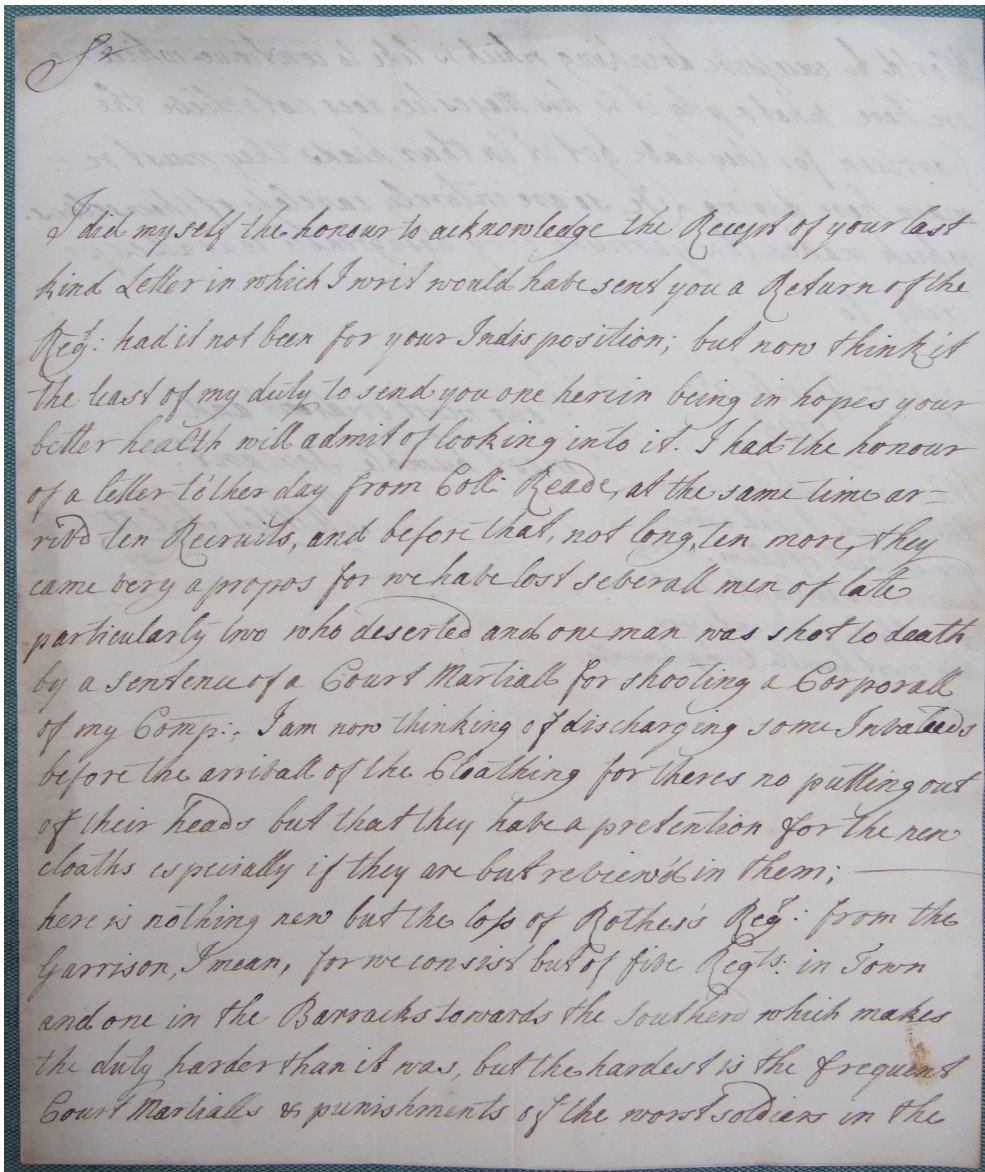 Sr
I did my self the honour to acknowledge the Receipt of your last
kind Letter in which I writ would have sent you a Return of the
Regt: had it not been for your Indisposition; but now think it
the least of my duty to send you one herein being in hopes your
better health will admit of looking into it. I had the honour
of a letter to'ther day from Coll: Reade, at the same time ar=
riv'd ten Recruits, and before that, not long, ten more, they
came very apropos for we have lost severall men of late
particularly two who deserted and one man was shot to death
by a sentence of a Court Martiall for shooting a Corporall
of my Comp:, I am now thinking of discharging some Invaleeds
before the arrivall of the Cloathing for theres no putting out
of their heads but that they have a pretention for the new
cloaths especially if they are but review'd in them;
here is nothing new but the loss of Rothes's Regt: from the
Garrison, I mean, for we consist but of five Regts: in Town
and one in the Barracks towards the Southerd which makes
the duty harder than it was, but the hardest is the frequent
Court Martialls & punishments of the worst soldiers in the